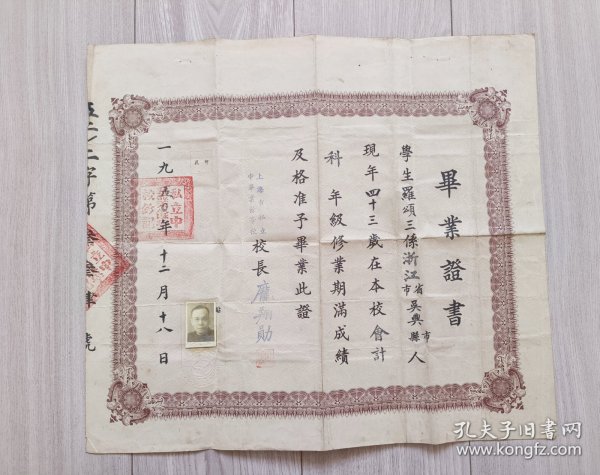 畢業證書
學生羅頌三係浙江省市吳興縣市人
現年四十三歲在本校會計
科 年級修業期滿成績
及格准予畢業此證
上海市私立
中華業餘學校
校長
一九五〇年十二月十八日
字第
號
孔夫子旧书网
www.kongfz.com